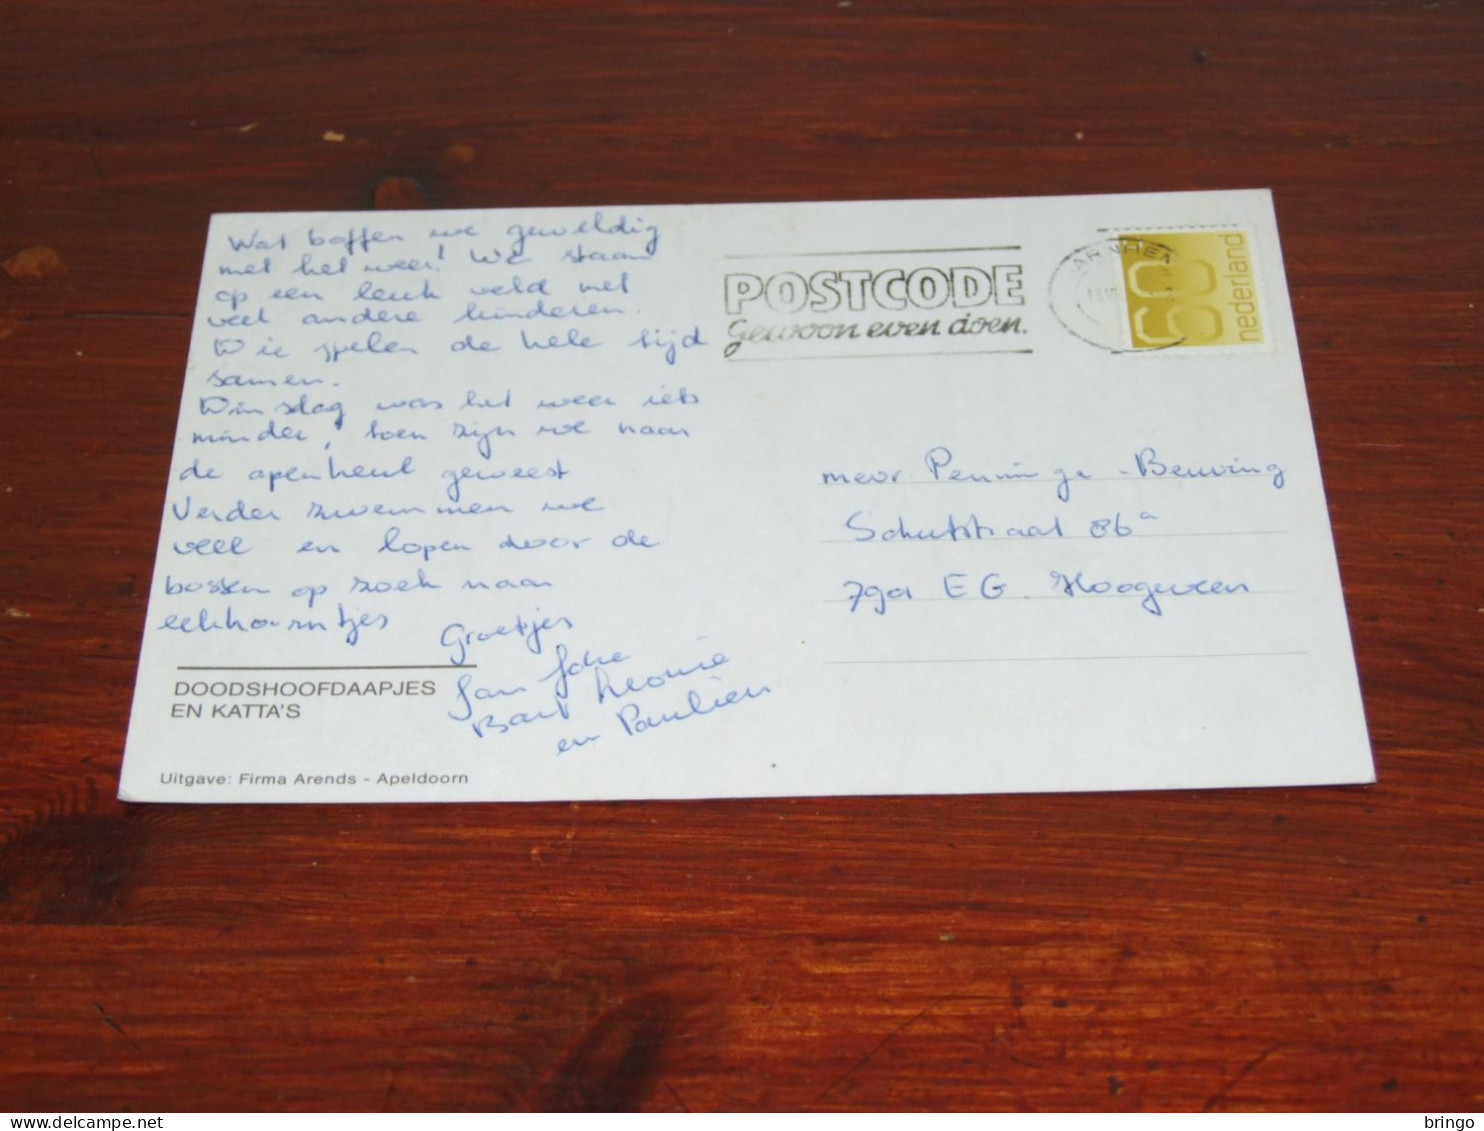 Wat boffen we geweldig
met het weer! We staan
op een leuk veld met
veel andere kinderen.
Die spelen de hele tijd
samen.
Dinsdag was het weer iets
minder, toen zijn we naar
de apenheul geweest
Verder zwemmen we
veel en lopen door de
bossen op zoek naar
eekhoorntjes
Groetjes
Jan
Bart Leonie
en Paulien
DOODSHOOFDAAPJES
EN KATTA'S
Uitgave: Firma Arends - Apeldoorn
POSTCODE
Gewoon even doen.
ARNHEM
60
nederland
mevr Penninga - Beuving
Schutstraat 86a
7901 EG. Hoogeveen
bringo